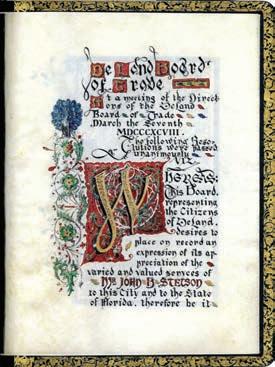 De Land Board
of Trade
At a meeting of the Direct
ors of the DeLand
Board of Trade
March the Seventh
MDCCCXCVIII.
The following Reso-
lutions were passed
unanimously
VIZ
WHEREAS
This Board,
representing
the Citizens
of DeLand,
desires to
place on record an
expression of its ap
preciation of the
varied and valued services of
Mr John B Stetson
to this City and to the State
of Florida, therefore be it